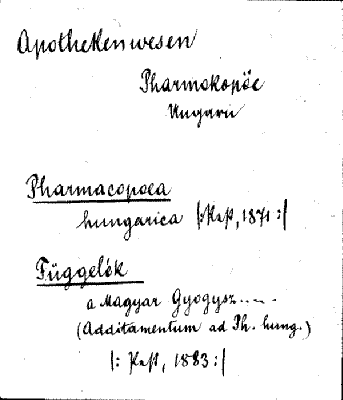 Apothekenwesen
Pharmokopöe
Ungarn
Pharmacopoea
hungarica |: Pest, 1871 :|
Függelék
a Magyar Gyógysz.....
(Additamentum ad Ph. hung.)
|: Pest, 1883 :|